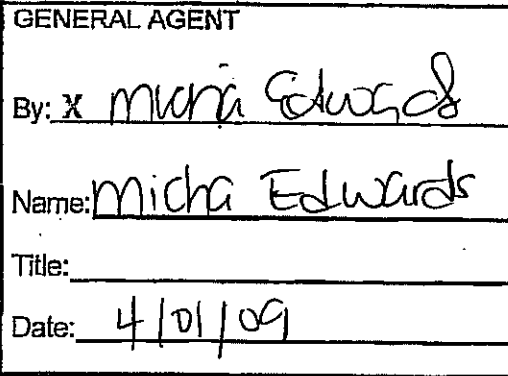 GENERAL AGENT
By: X Micha Edwards
Name: Micha Edwards
Title:
Date: 4/01/09